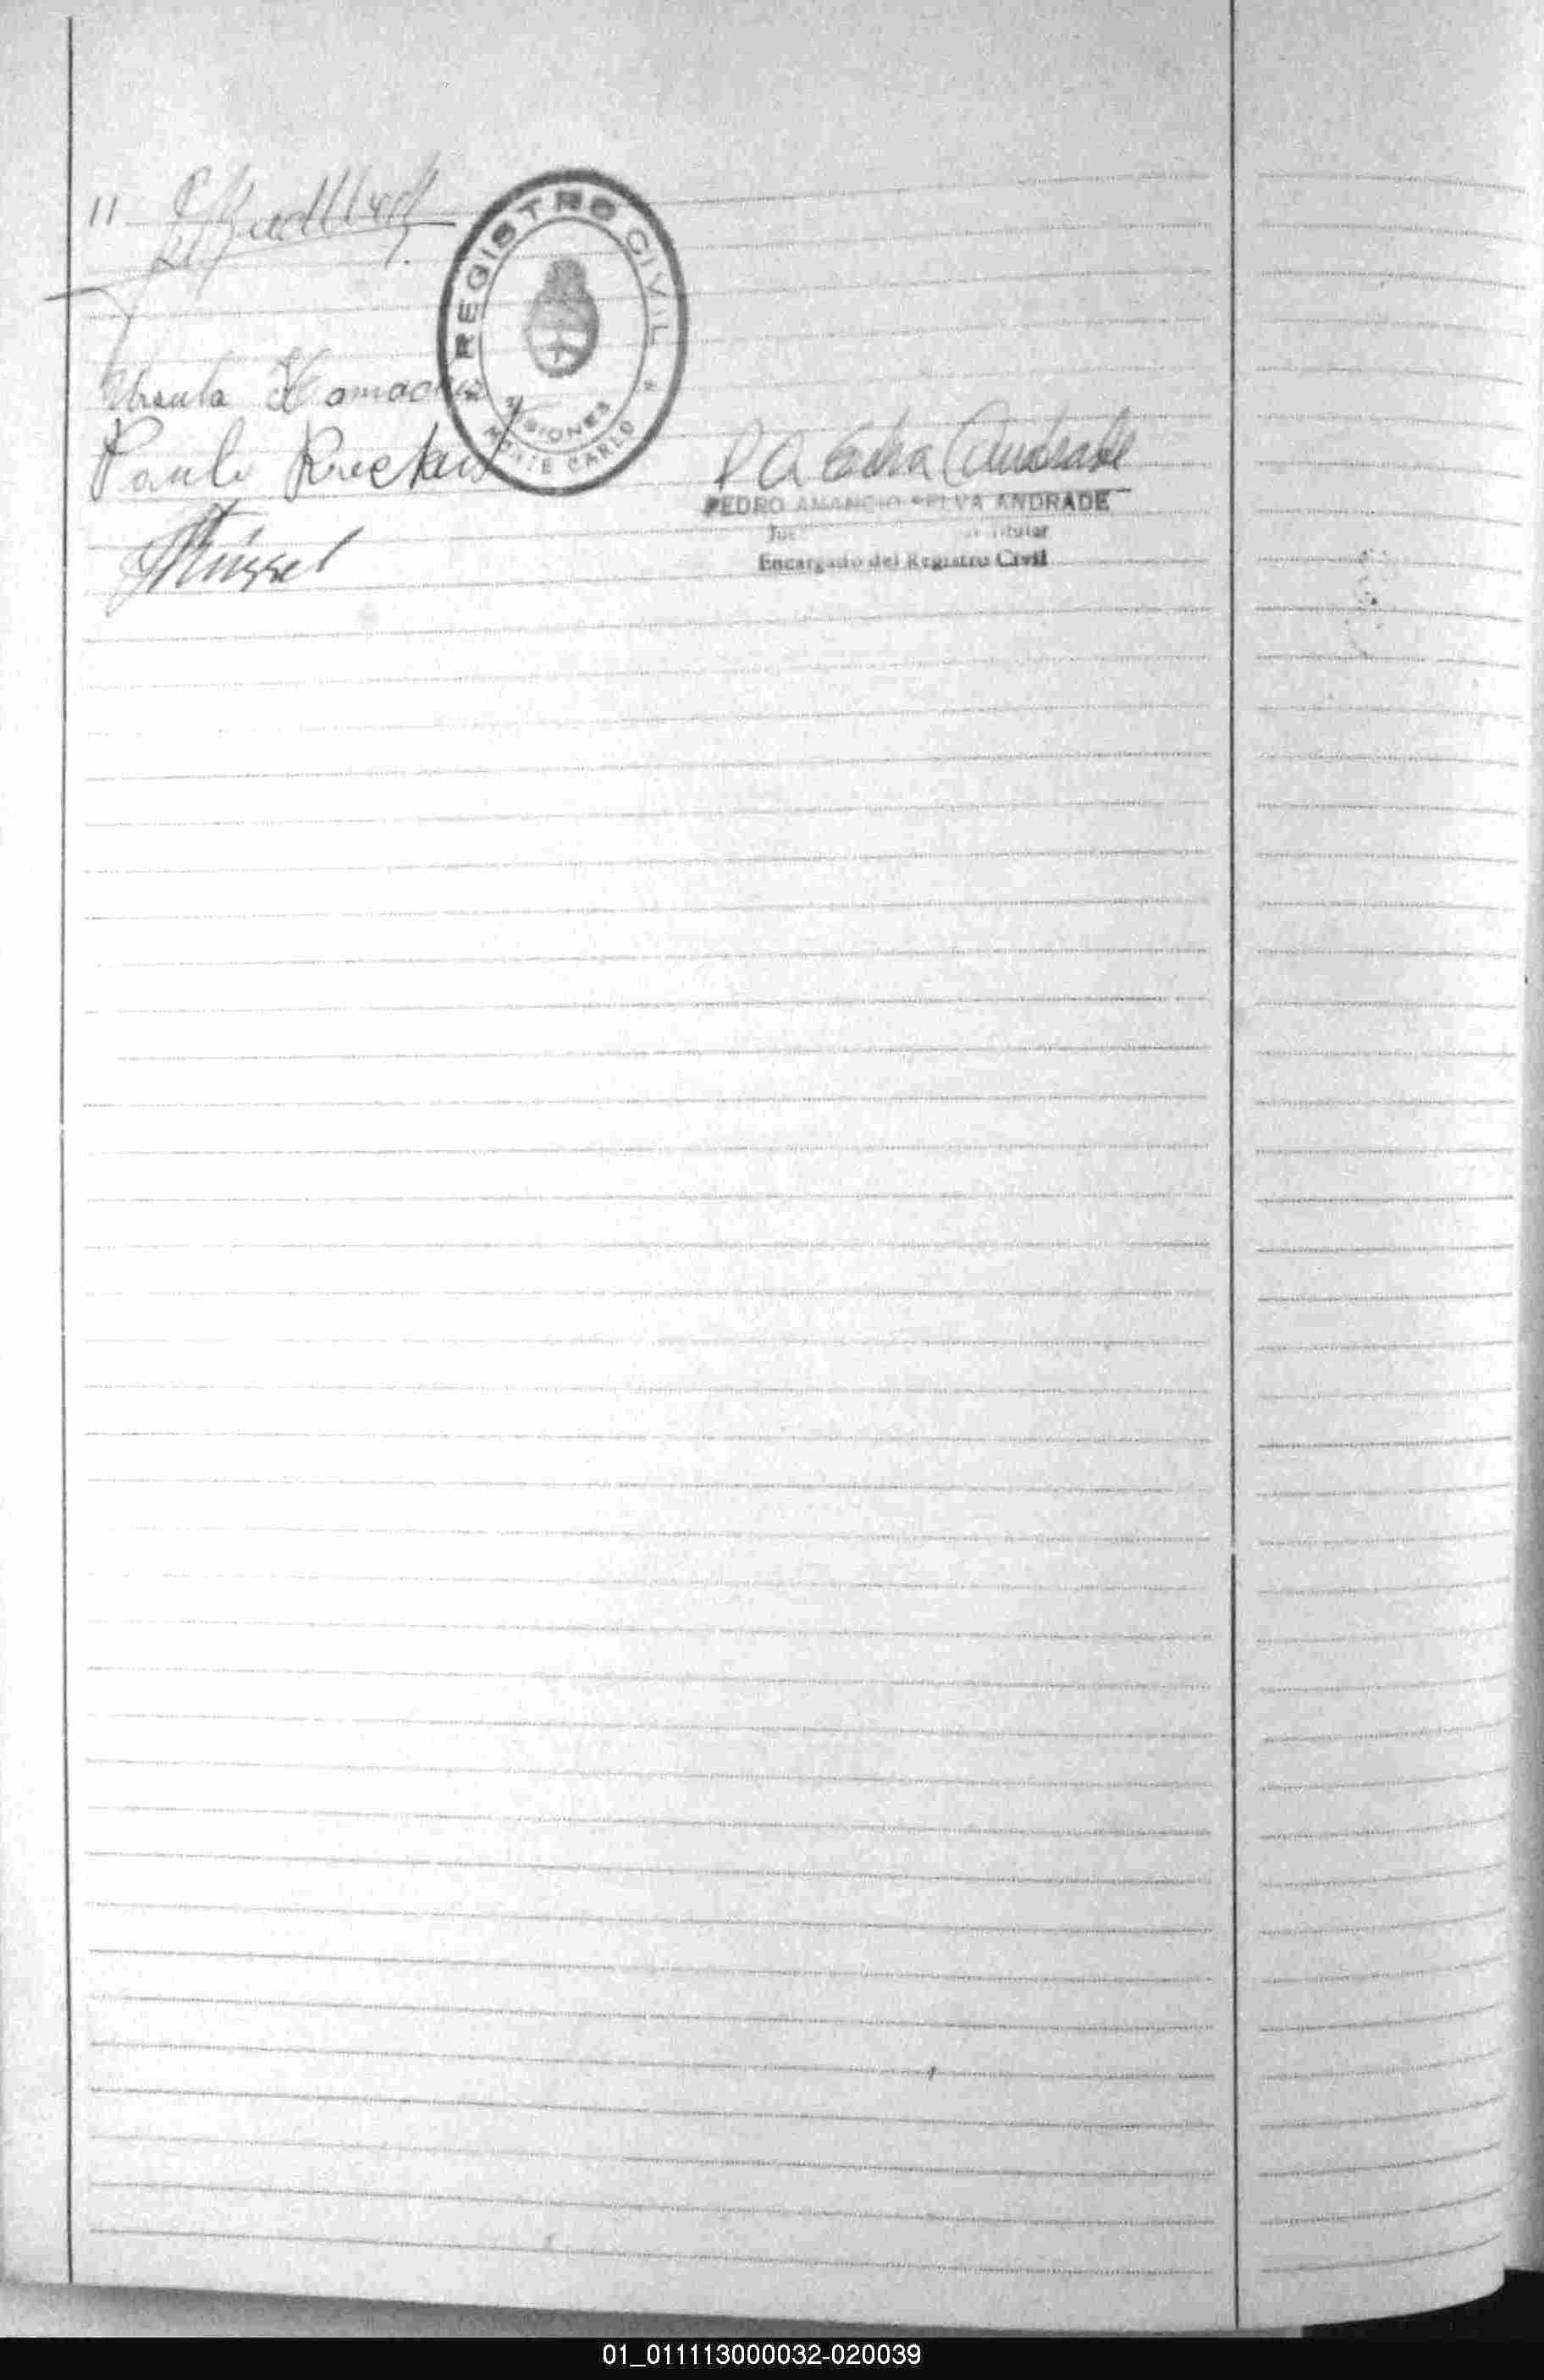 11
REGISTRO CIVIL
MISIONES
MONTE CARLO
Ursula Hamacher
Paulo Rueckert
P A Selva Andrade
PEDRO AMANCIO SELVA ANDRADE
Titular
Encargado del Registro Civil
01_011113000032-020039